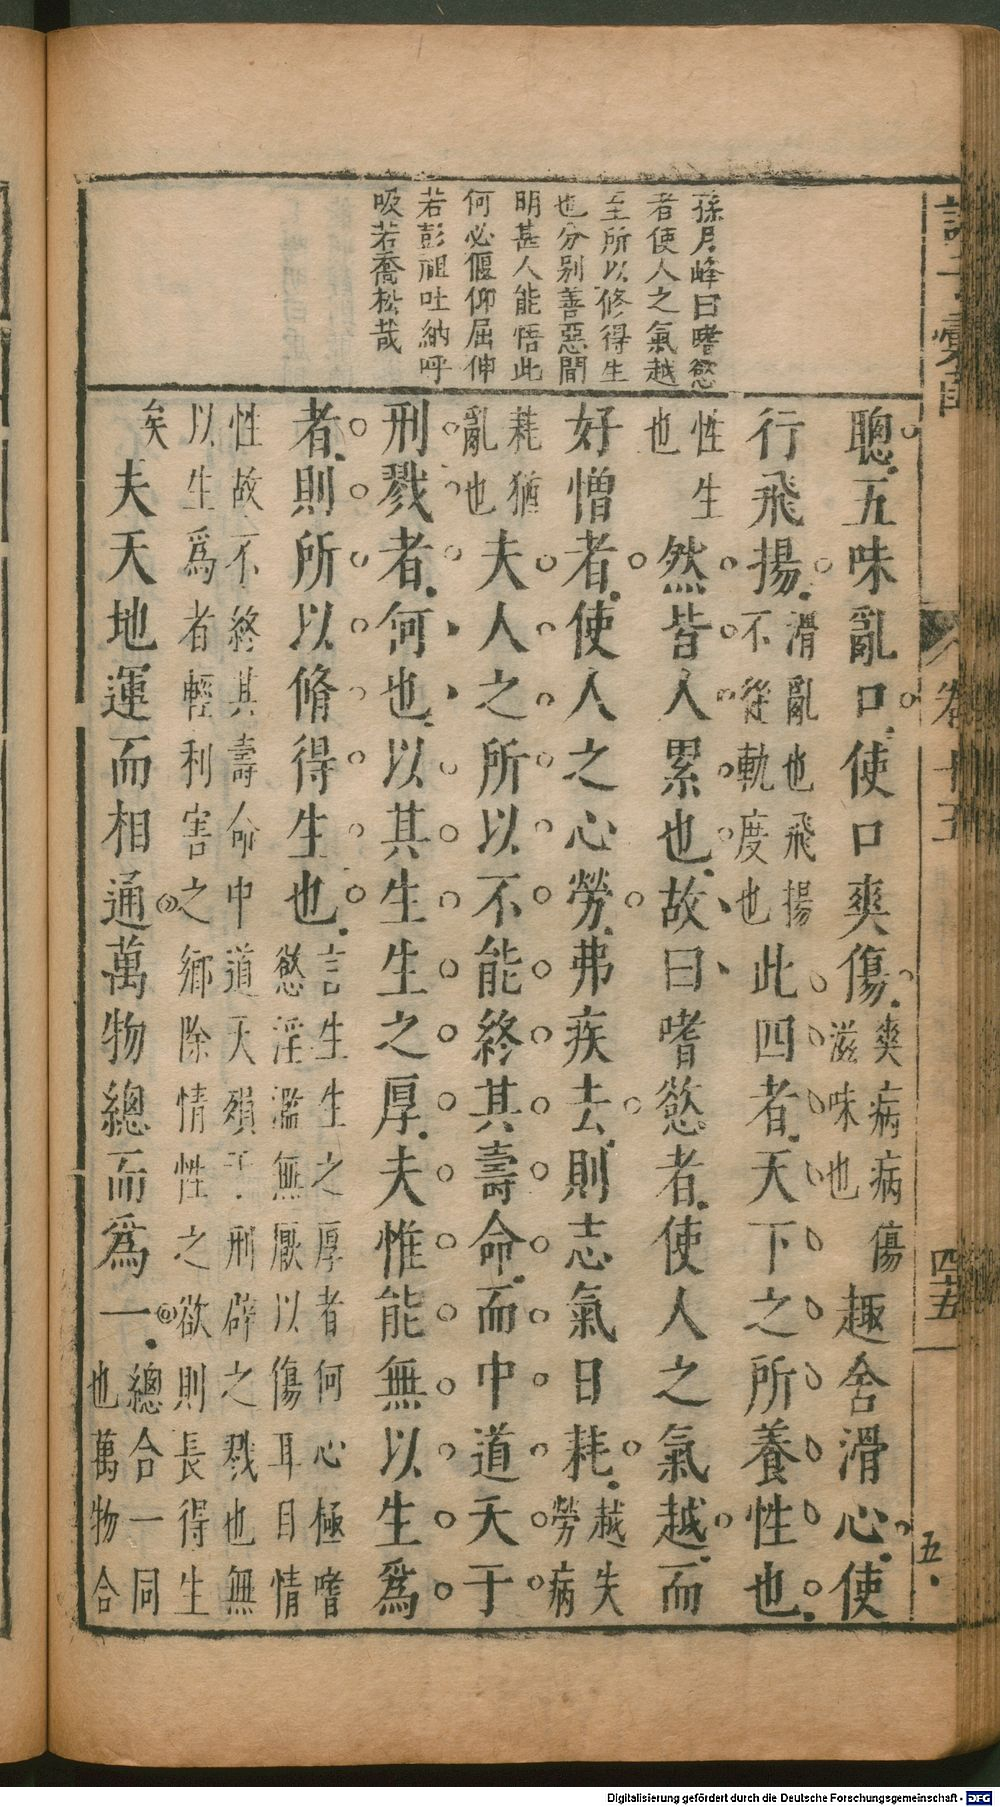 孫月峰曰嗜慾
者使人之氣越
至所以修得生
也分别善惡間
明甚人能悟此
何必偃仰屈伸
若彭祖吐納呼
吸若喬松哉
聰五味亂口使口爽傷爽病病傷滋味也趣舍滑心使
行飛揚滑亂也飛揚不從軌度也此四者天下之所養性也
性生也然皆人累也故曰嗜慾者使人之氣越而
好憎者使人之心勞弗疾去則志氣日耗越失勞病
耗猶亂也夫人之所以不能終其壽命而中道夭于
刑戮者何也以其生生之厚夫惟能無以生爲
者則所以脩得生也言生生之厚者何心極嗜慾淫濫無厭以傷耳目情
性故不終其壽命中道夭殞于刑辟之戮也無以生爲者輕利害之鄉除情性之欲則長得生
矣夫天地運而相通萬物總而爲一總合一同也萬物合
卷十五
四十五
五
Digitalisierung gefördert durch die Deutsche Forschungsgemeinschaft - DFG